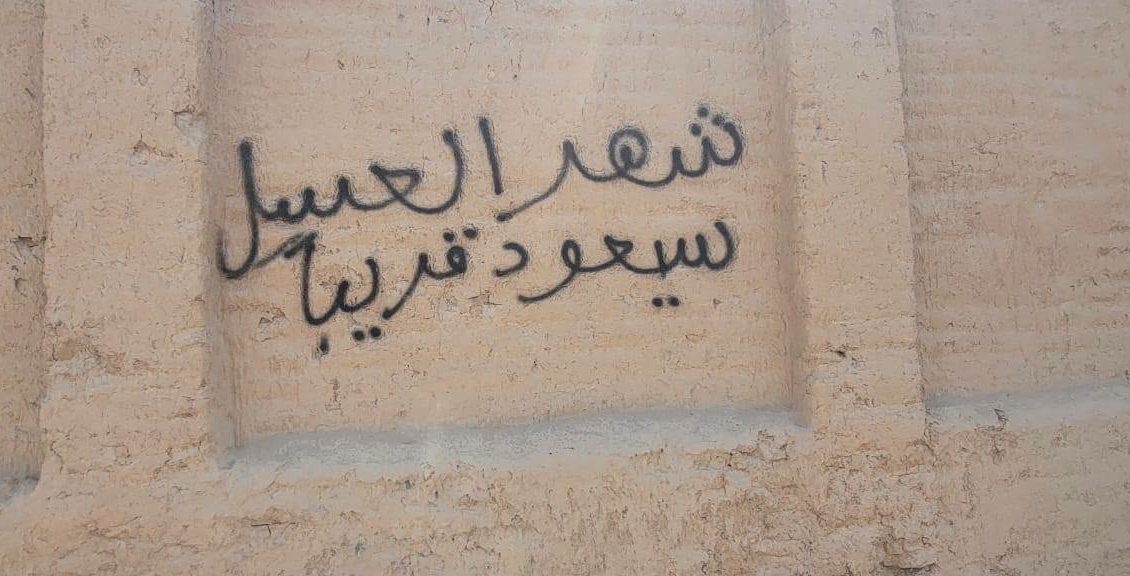 شهر العسل
سيعود قريبا